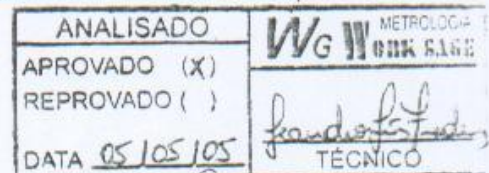 ANALISADO
APROVADO (X)
REPROVADO ( )
DATA 05/05/05
WG METROLOGIA
WORK GAGE
TÉCNICO